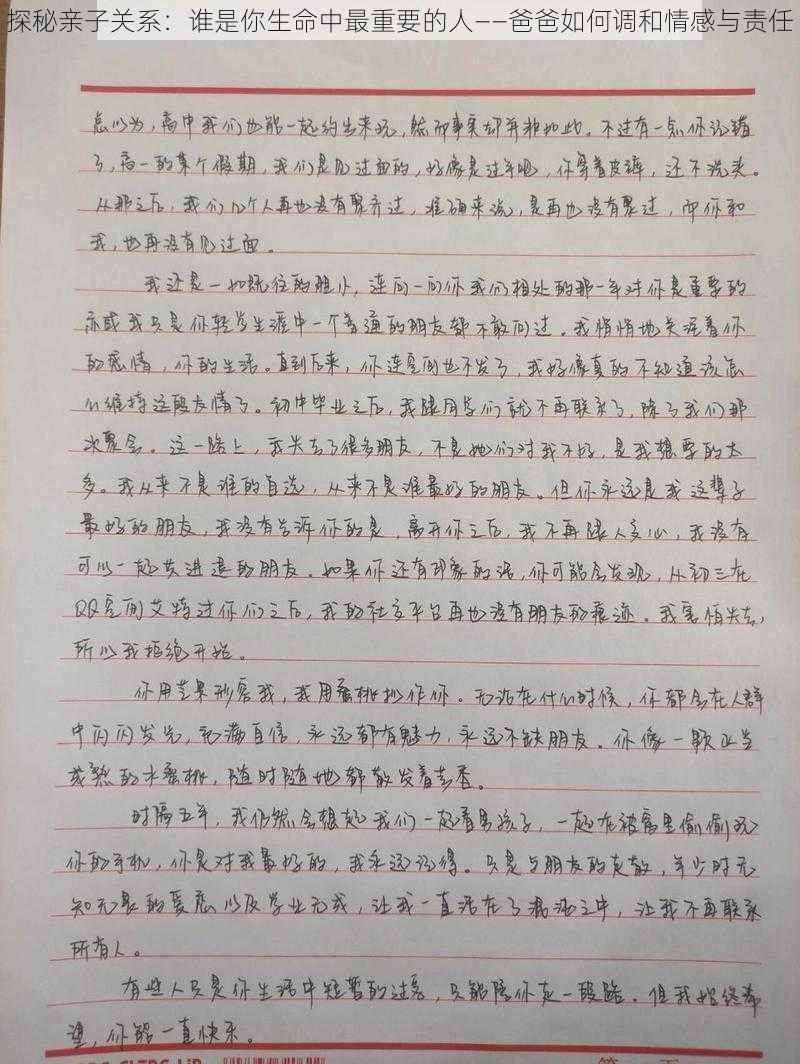 探秘亲子关系：谁是你生命中最重要的人——爸爸如何调和情感与责任
总以为，高中我们也能一起约出来玩，然而事实却并非如此。不过有一点你说错
了，高一的某个假期，我们是见过面的，好像是过年吧，你穿着皮裤，还不洗头。
从那之后，我们几个人再也没有聚齐过，准确来说，是再也没有聚过，而你和
我，也再没有见过面。
我还是一如既往的胆小，连问一问你我们相处的那一年对你是重要的
亦或我只是你轻岁生涯中一个普通的朋友都不敢问过。我悄悄地关注着你
的感情，你的生活。直到后来，你连空间也不发了，我好像真的不知道该怎
么维持这段友情了。初中毕业之后，我跟同学们就不再联系了，除了我们那
次聚会。这一路上，我失去了很多朋友，不是她们对我不好，是我想要的太
多。我从来不是谁的首选，从来不是谁最好的朋友。但你永远是我这辈子
最好的朋友，我没有告诉你的是，离开你之后，我不再跟人交心，我没有
可以一起共进退的朋友。如果你还有印象的话，你可能会发现，从初三在
QQ空间艾特过你们之后，我的社交平台再也没有朋友的痕迹。我害怕失去，
所以我拒绝开始。
你用苹果形容我，我用蜜桃拟作你。无论在什么时候，你都会在人群
中闪闪发光，充满自信，永远都有魅力，永远不缺朋友。你像一颗正当
成熟的水蜜桃，随时随地都散发着芳香。
时隔五年，我仍然会想起我们一起看男孩子，一起在被窝里偷偷玩
你的手机，你是对我最好的，我永远记得。只是与朋友的走散，年少时无
知无畏的爱恋以及学业无成，让我一直活在了混沌之中，让我不再联系
所有人。
有些人只是你生活中短暂的过客，只能陪你走一段路。但我始终希
望，你能一直快乐。